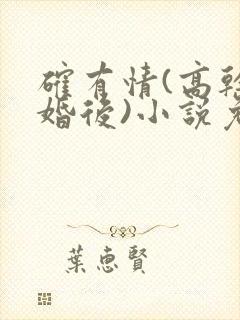 確有情(高幹
婚後)小說免
葉惠賢